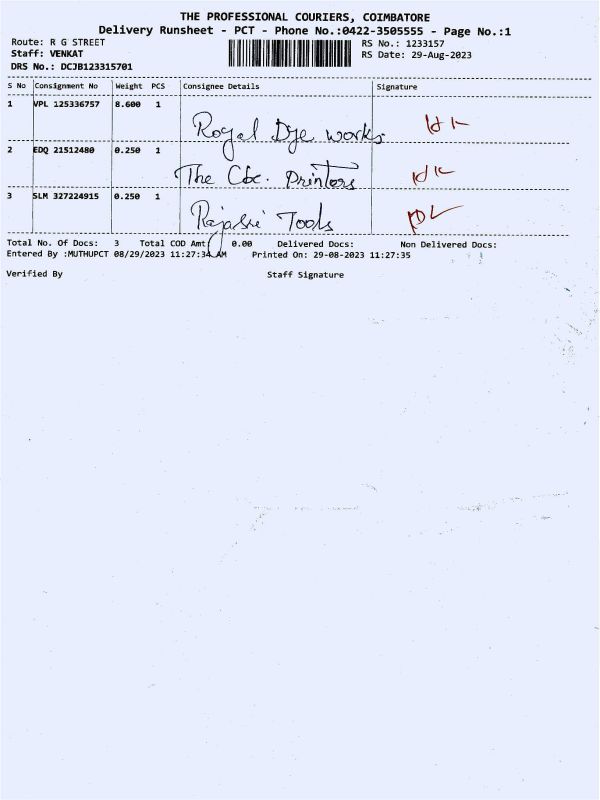 THE PROFESSIONAL COURIERS, COIMBATORE
Delivery Runsheet - PCT - Phone No.:0422-3505555 - Page No.:1
Route: R G STREET RS No.: 1233157
Staff: VENKAT RS Date: 29-Aug-2023
DRS No.: DCJB123315701
S No Consignment No Weight PCS Consignee Details Signature
1 VPL 125336757 8.600 1 Royal Dye works
2 EDQ 21512480 0.250 1 The Cbc. Printers
3 SLM 327224915 0.250 1 Rajasri Tools
Total No. Of Docs: 3 Total COD Amt 0.00 Delivered Docs: Non Delivered Docs:
Entered By :MUTHUPCT 08/29/2023 11:27:34 AM Printed On: 29-08-2023 11:27:35
Verified By Staff Signature